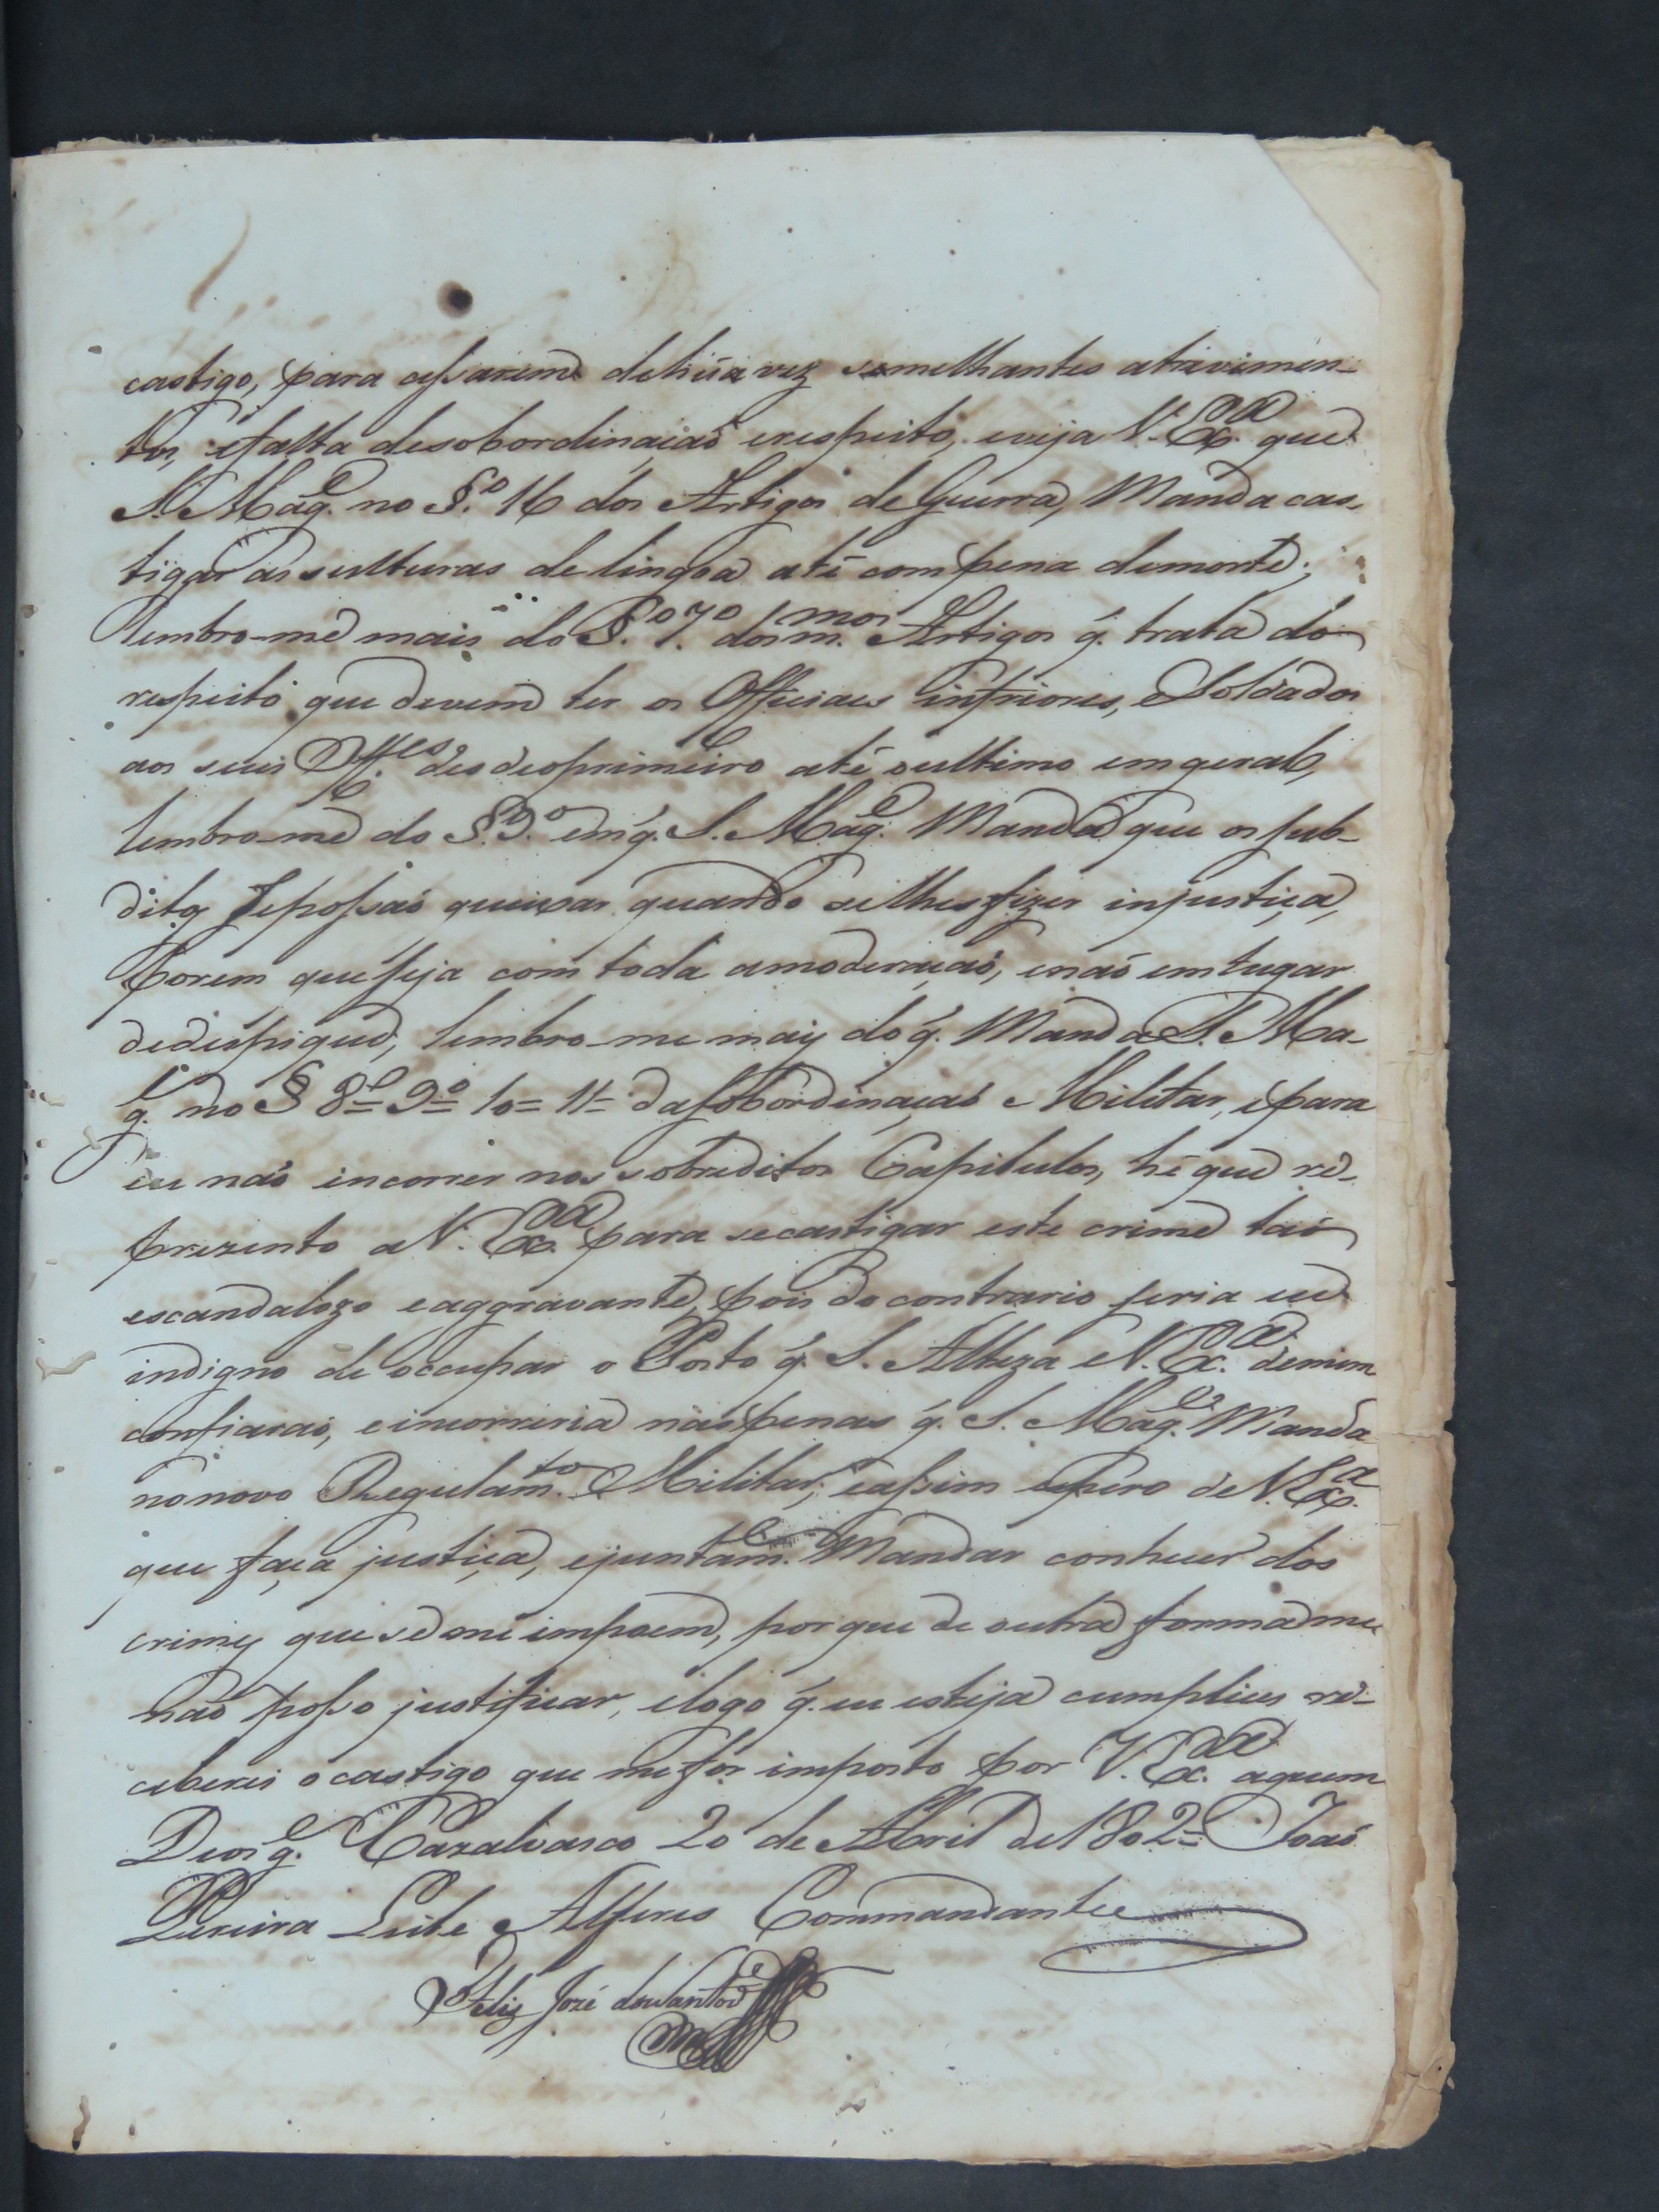 castigo, para cessarem dehũa vez semelhantes atrivimen-
tos, efalta desobordinaçaõ erespeito, eveja V. Exª. que
S. Magᵉ. no §º. 16 dos Artigos de Guerra, Manda cas-
tigar as sulturas de lingoa até compena demorte;
lembro-me mais do §º. 7º. dos mmºˢ. Artigos q̃. trata do
respeito que devem ter os Officiaes inferiores, eSoldados
aos seus Offᵉˢ. desdeoprimeiro até oultimo emgeral,
lembro-me do §. 9º. em q̃. S. Magᵉ. Manda que os sub-
ditos sepossaõ queixar quando selhesfizer injustiça,
porem queseja com toda amoderaçaõ, enaõ emlugar
dedespique, lembro-me mais do q̃. Manda S. Ma-
gᵉ. no § 8º= 9º= 10= 11= dasobordinaçaõ Militar, epara
eu naõ incorrer nos sobreditos Capitulos, hé que re-
prezento aV. Exª. para secastigar este crime taõ
escandalozo eaggravante, pois docontrario seria eu
indigno de occupar o Posto q̃. S. Alteza eV. Exª. demim
confiaraõ, eincorreria nas penas q̃. S. Magᵉ. Manda
nonovo Regulamᵗᵒ. Militar; eassim espero deV. Exª.
que faça justiça, ejuntamᵉ. Mandar conhecer dos
crimes que se me impoem, por que de outra forma me
naõ posso justificar, elogo q̃. eu esteja cumplice re-
ceberei ocastigo que mefor imposto por V. Exª. aquem
Deos gᵉ. Cazalvasco 20 de Abril de 1802= Joaõ
Pereira Leite Alferes Commandante
Felis Jozé dosSantos